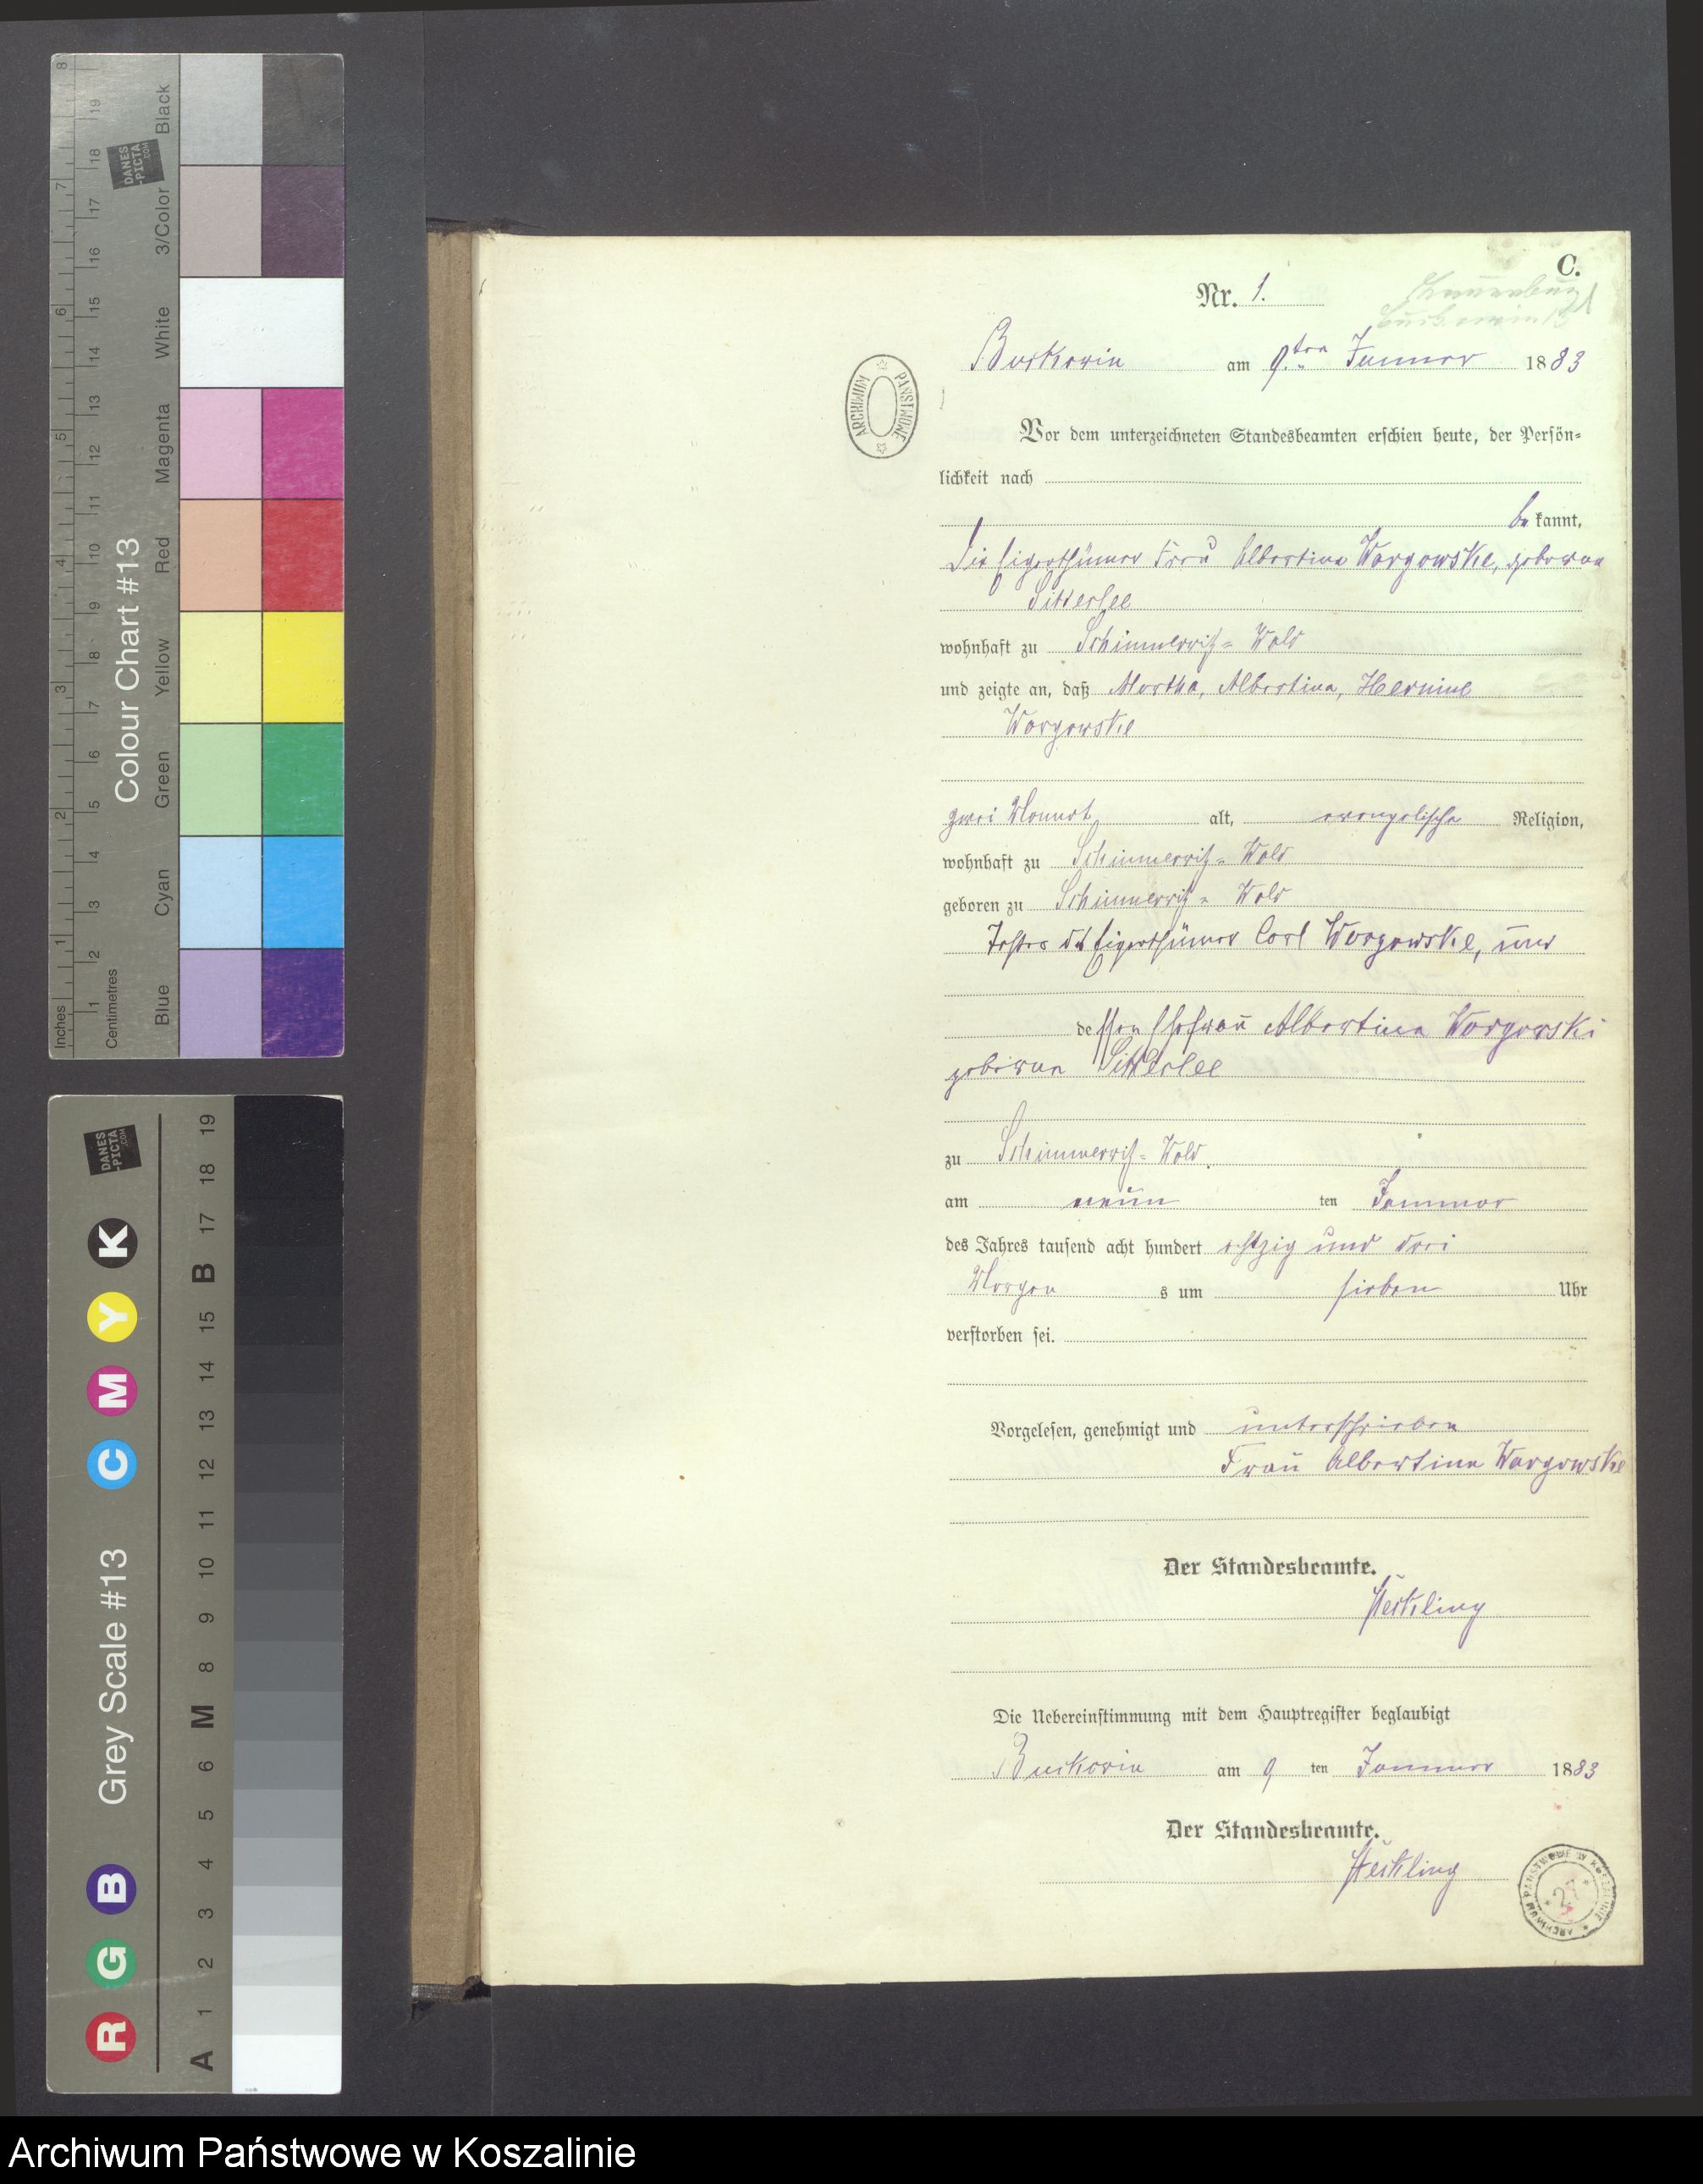 C.
Nr. 1.
Buckowin am 9ten Januar 1883
Vor dem unterzeichneten Standesbeamten erschien heute, der Persön-
lichkeit nach
be kannt,
die Eigenthümer Frau Albertine Worgowske, geborene
wohnhaft zu Schimmerwitz-Wald
und zeigte an, daß Martha, Albertine, Hermine
Worgowske
zwei Monat alt, evangelische Religion,
wohnhaft zu Schimmerwitz-Wald
geboren zu Schimmerwitz-Wald
Tochter des Eigenthümer Carl Worgowske, und
dessen Ehefrau Albertine Worgowski
geborene
zu Schimmerwitz-Wald.
am neun ten Januar
des Jahres tausend acht hundert achtzig und drei
Morgen s um sieben Uhr
verstorben sei.
Vorgelesen, genehmigt und unterschrieben
Frau Albertine Worgowske
Der Standesbeamte.
Die Uebereinstimmung mit dem Hauptregister beglaubigt
Buckowin am 9 ten Januar 1883
Der Standesbeamte.
ARCHIWUM PAŃSTWOWE
ARCHIWUM PAŃSTWOWE W KOSZALINIE
27
Colour Chart #13
Blue Cyan Green Yellow Red Magenta White 3/Color Black
Inches 1 2 3 4 5 6 7 8
Centimetres 1 2 3 4 5 6 7 8 9 10 11 12 13 14 15 16 17 18 19
DANES
-PICTA
.COM
Grey Scale #13
R G B C M Y K
A 1 2 3 4 5 6 M 8 9 10 11 12 13 14 15 B 17 18 19
DANES
-PICTA
.COM
Archiwum Państwowe w Koszalinie